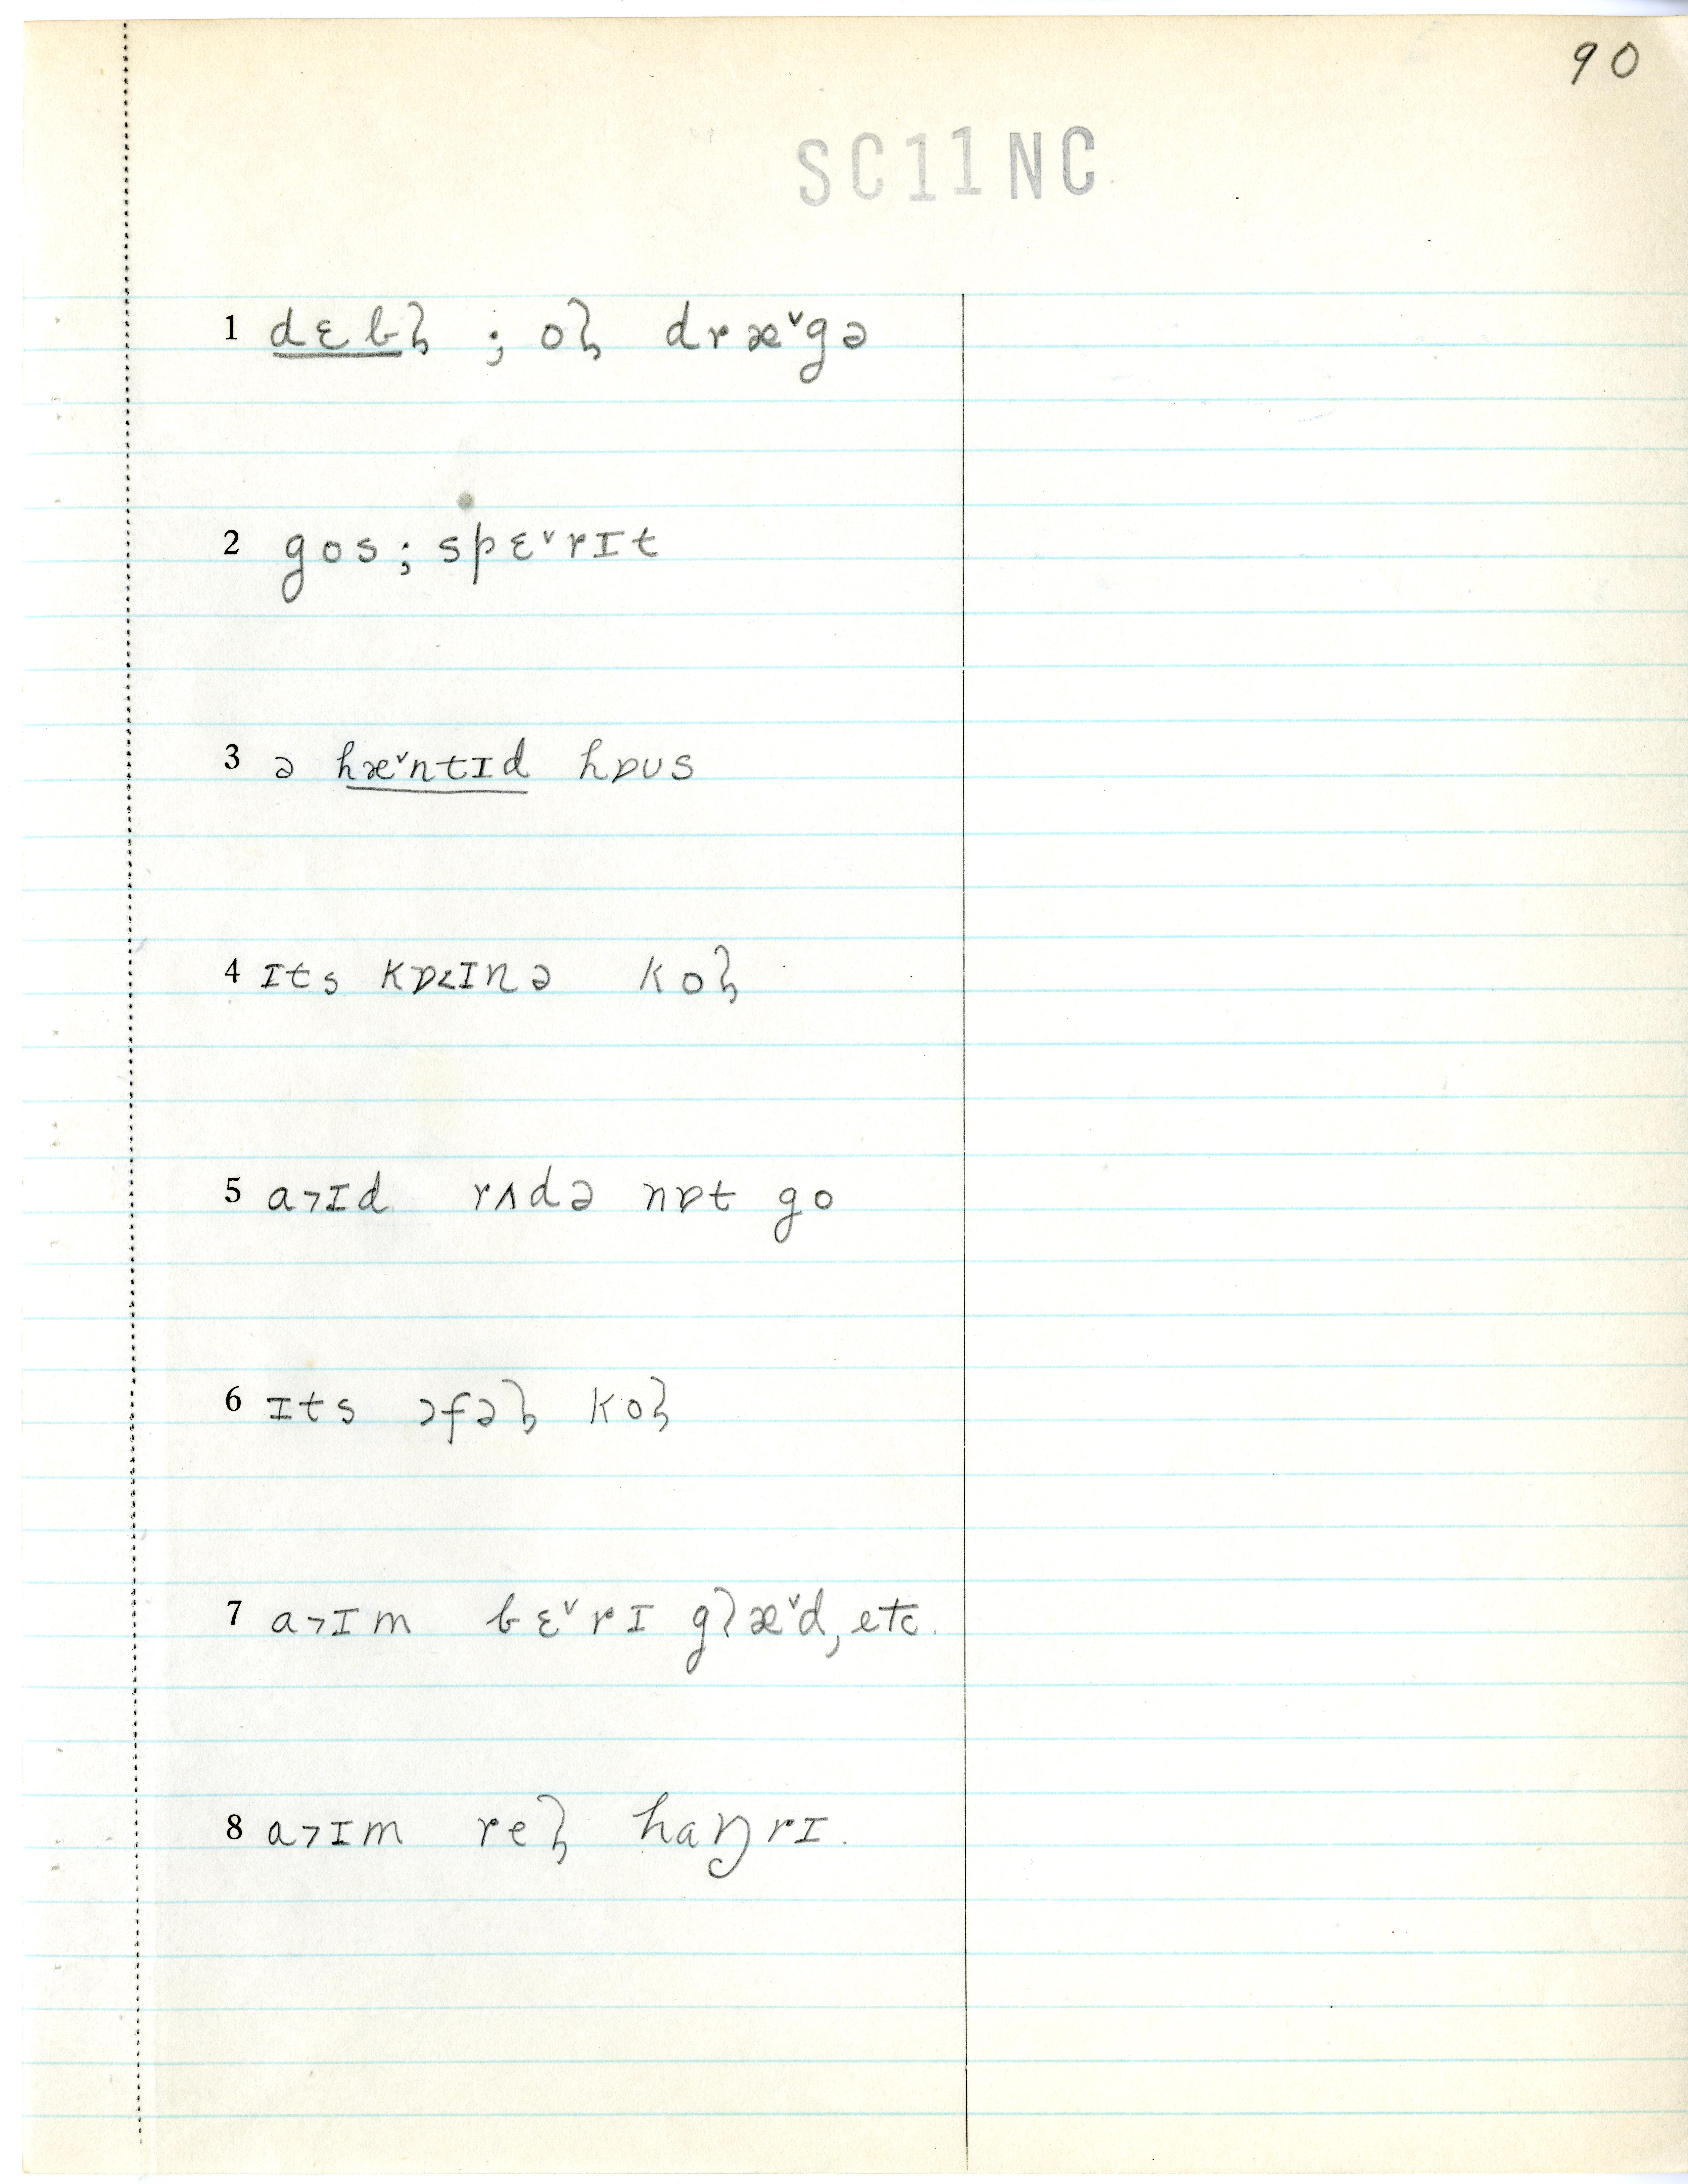 90
SC11NC
1 dɛbl̩ ; ol̩ dræ˅gə
2 gos; spɛ˅rɪt
3 ə hæ˅ntɪd hɒʊs
4 ɪts kɒ˂ɪnə kol̩
5 a˃ɪd rʌdə nɒt go
6 ɪts ɔfəl̩ kol̩
7 a˃ɪm bɛ˅rɪ glæ˅d, etc.
8 a˃ɪm rel̩ haŋrɪ.